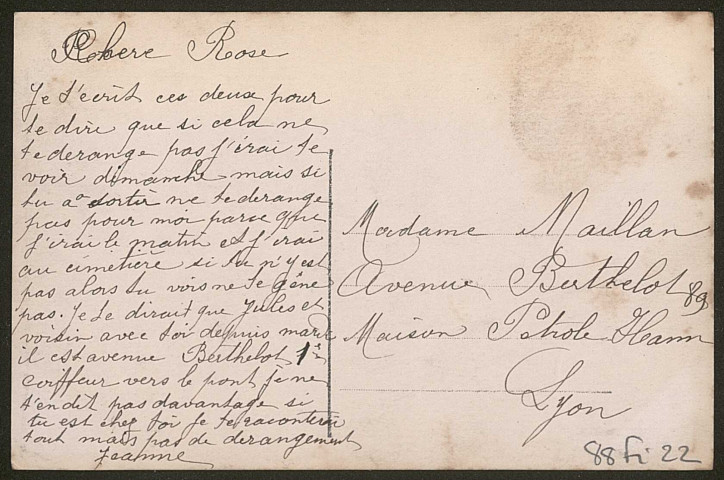 Chere Rose
Je t'ecrit ces deux pour
te dire que si cela ne
te derange pas j'irai te
voir dimanche mais si
tu a sortir ne te derange
pas pour moi parse que
j'irai le matin et j'irai
au cimetière si tu n'y est
pas alors tu vois ne te gêne
pas. Je te dirait que Jules et
voisin avec toi depuis mardi
il est avenue Berthelot 1er
coiffeur vers le pont je ne
t'en dit pas davantage si
tu est chez toi je te racontirai
tout mais pas de derangement
Jeanne
Madame Maillan
Avenue Berthelot 89
Maison
Lyon
88 Fi 22